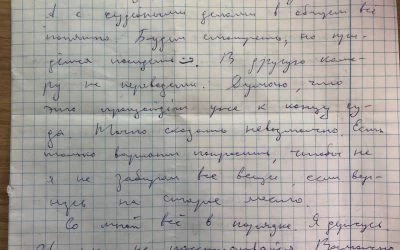 А с судебными делами в общем всё
понятно. Будет смотреть, но при-
дётся
В другую каме-
ру не перевели. Думаю, что
это уже к концу су-
да. Точно сказать невозможно. Есть
только вариант попросить, чтобы не
я не забирал все вещи, если вер-
нусь на старое место.
Со мной всё в порядке. Я держусь